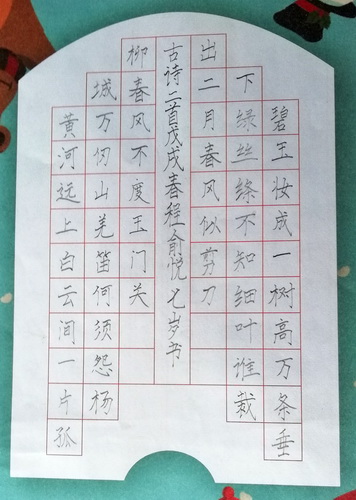 碧玉妆成一树高万条垂
下绿丝绦不知细叶谁裁
出二月春风似剪刀
黄河远上白云间一片孤
城万仞山羌笛何须怨杨
柳春风不度玉门关
古诗二首戊戌春程俞悦七岁书